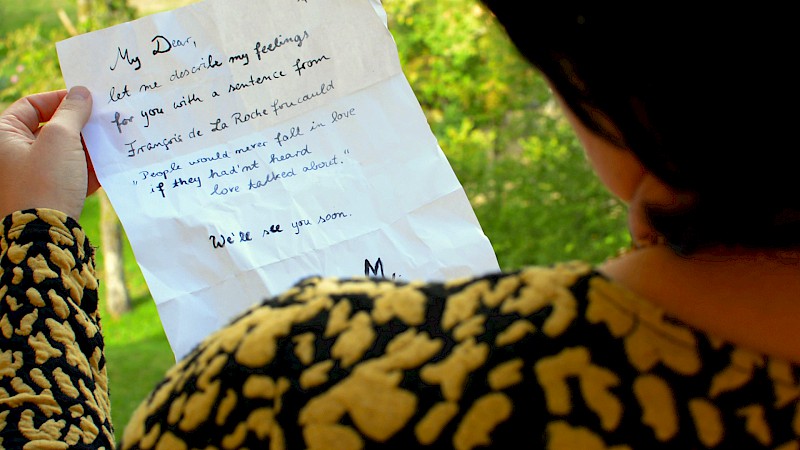 My Dear,
let me describe my feelings
for you with a sentence from
François de La Roche foucauld
"People would never fall in love
if they had'nt heard
love talked about."
We'll see you soon.